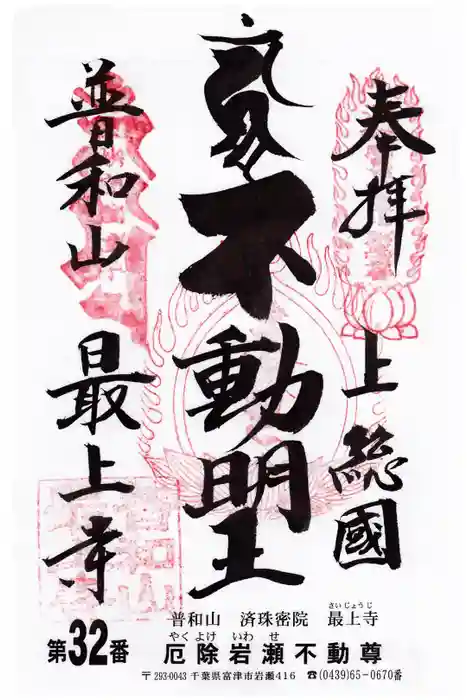 奉拝
上總國
不動明王
普和山
最上寺
普和山 済珠密院 最上寺
さいじょうじ
第32番
厄除岩瀬不動尊
やくよけ いわせ
〒293-0043 千葉県富津市岩瀬416 ☎(0439)65-0670番